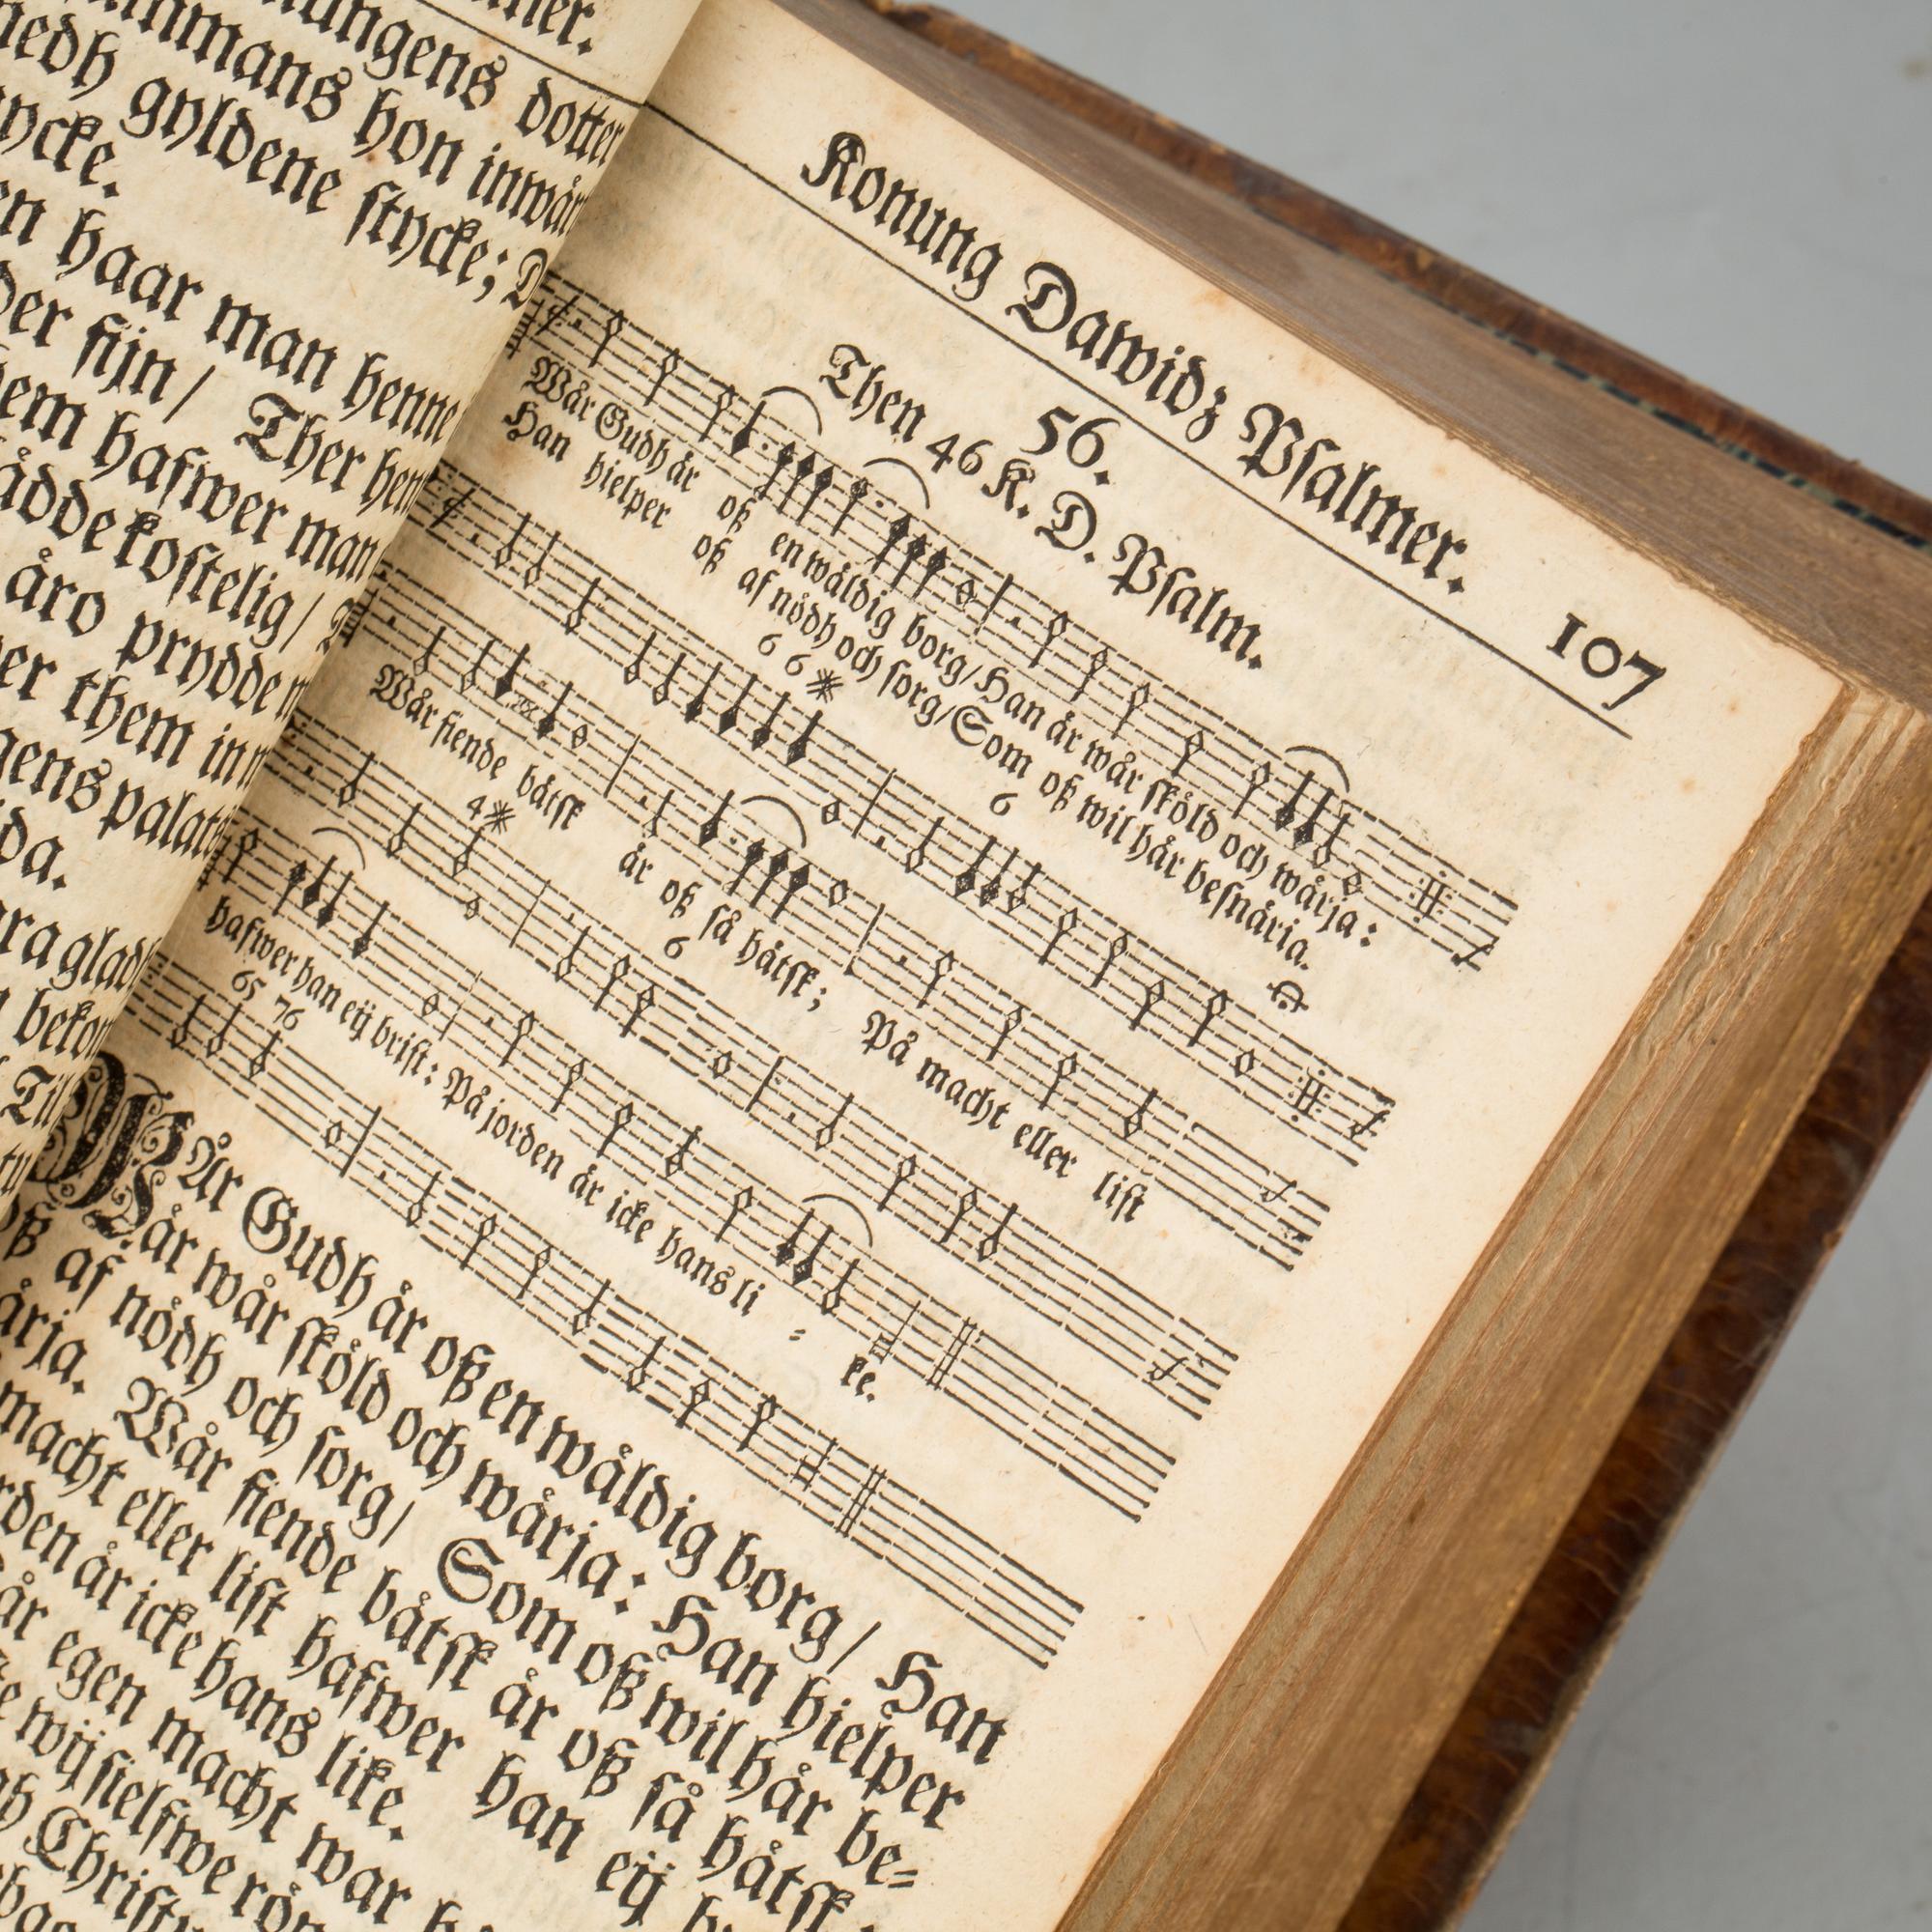 ungens dotter
inmans hon inwår
medh gyldene stycke; D
ycke.
haar man henne
der fijn/ Ther hen
hafwer man
kostelig/
äro prydde
them in
gens palats
da.
Konung Dawidz Psalmer. 107
56.
Then 46 K. D. Psalm.
Wår Gudh är oß en wäldig borg/ Han är wår sköld och wärja:
Han hielper oß af nödh och sorg/ Som oß wil här besnäria.
6 6 6
Wår fiende bätsk är oß så hätsk; På macht eller list
4 6
hafwer han eij brist: På jorden är icke hans li - ke.
65 76
WÅr Gudh är oß en wäldig borg/ Han
är wår sköld och wärja: Han hielper
oß af nödh och sorg/ Som oß wil här be-
ärja. Wår fiende bätsk är oß så hätsk
macht eller list hafwer han eij
rden är icke hans like.
egen macht war
Christ